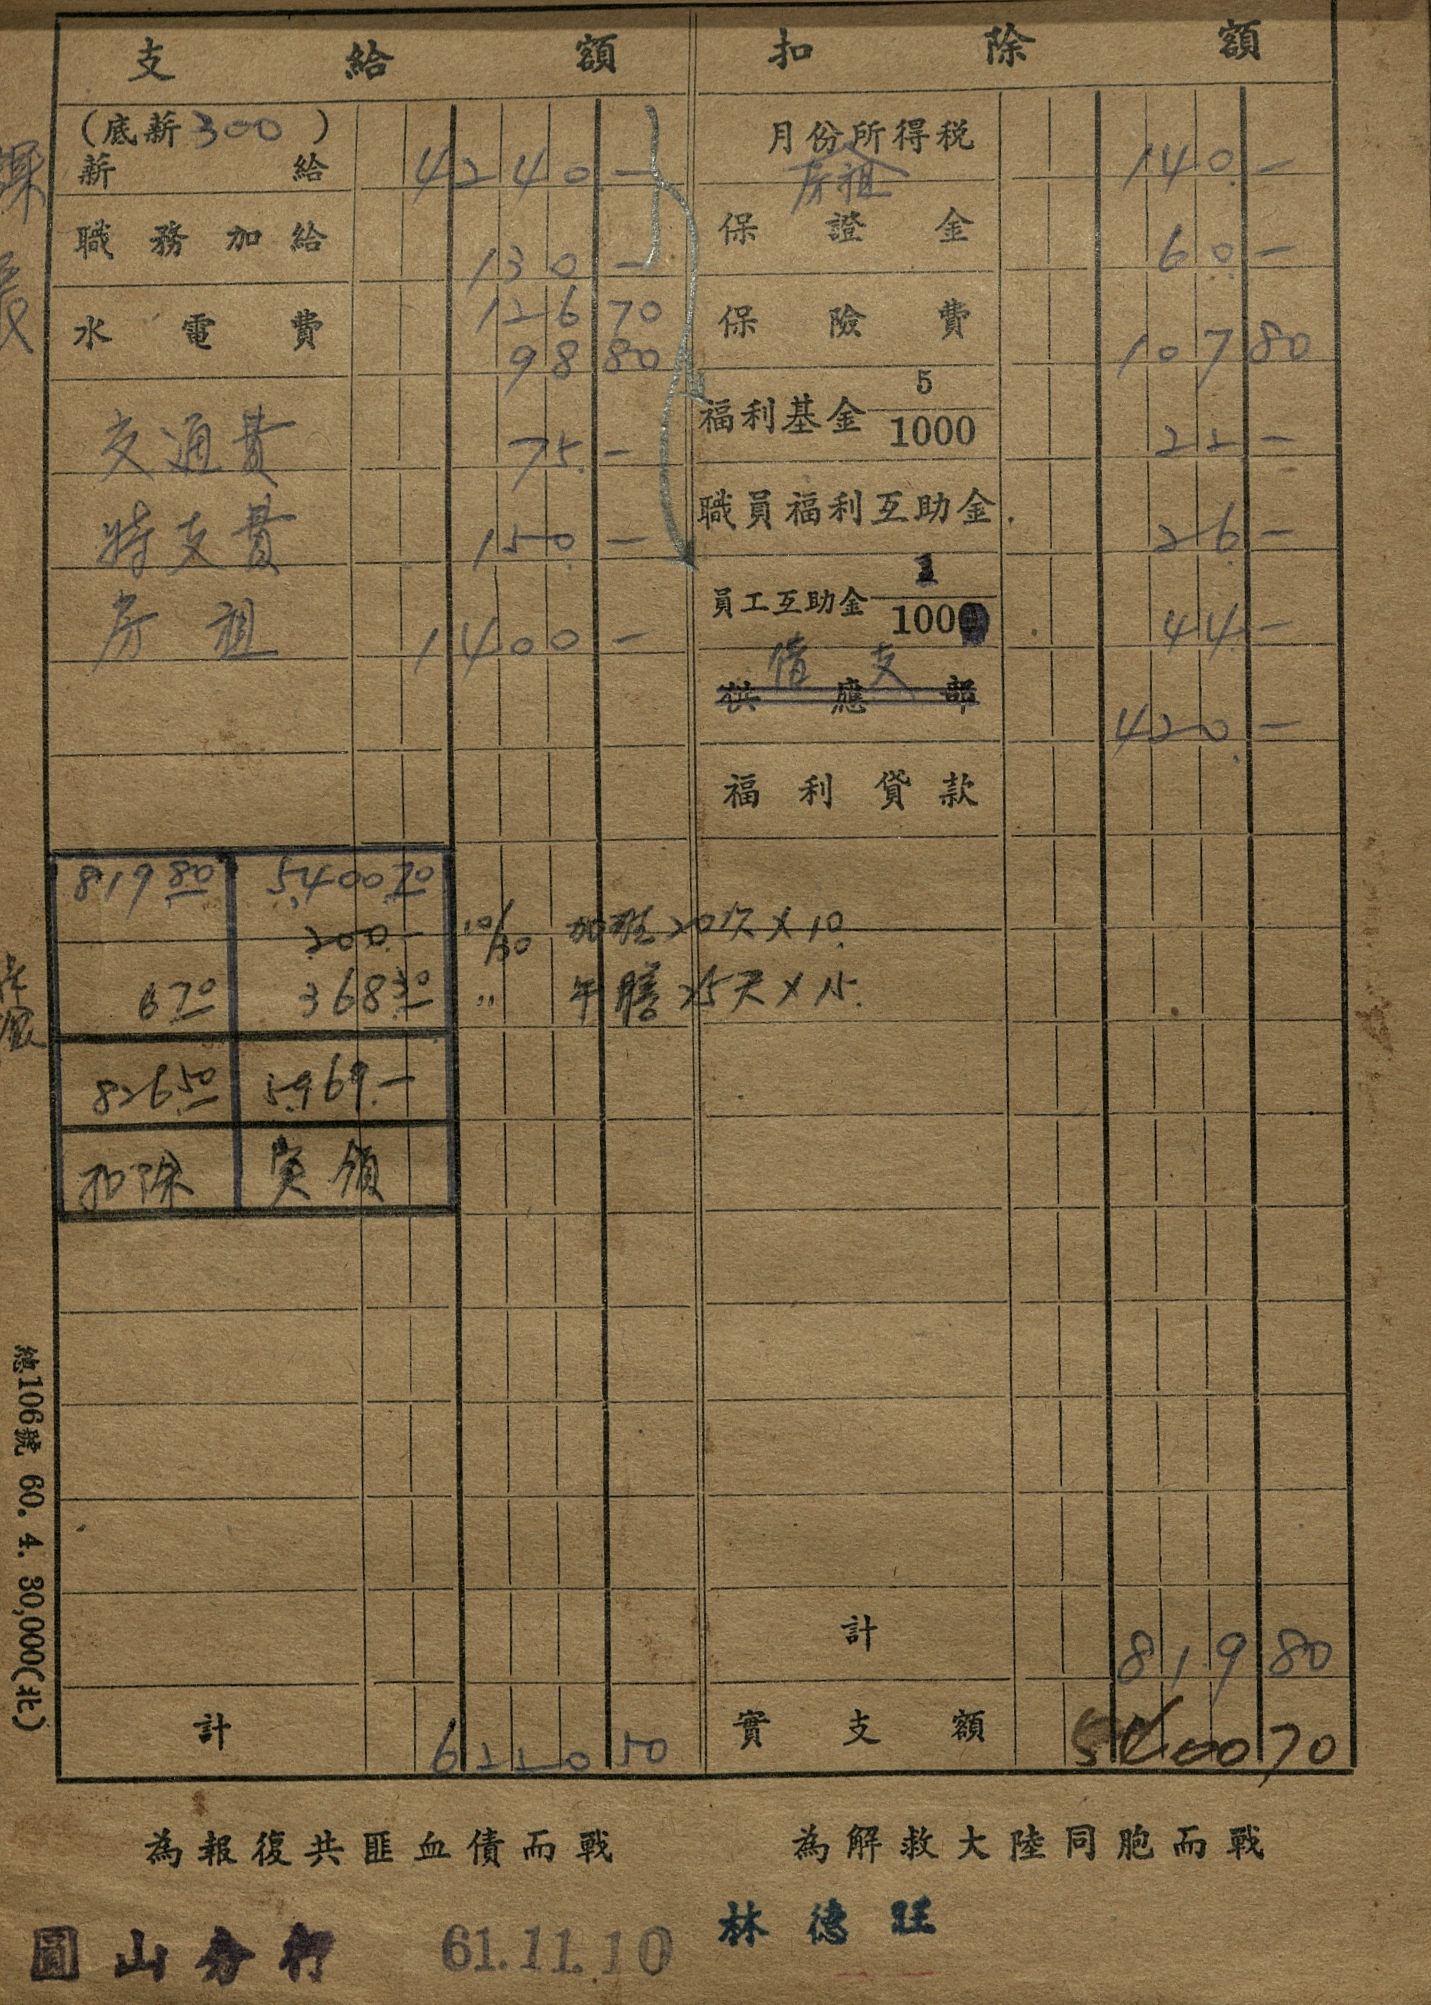 支給額
扣除額
(底薪300)
薪給 4240.-
職務加給 130.-
水電費 126 70
98 80
交通費 75.-
特支費 150.-
房租 1400.-
月份所得税 140.-
房租
保證金 60.-
保險費 107 80
福利基金 5/1000 22.-
職員福利互助金. 26.-
員工互助金 1/100 44.-
借支
供應部 420.-
福利貸款
819.80 5,400.70
200.- 10/30 加班20次×10.
6.70 368.30 〃 午膳25天×15.
826.50 5,969.-
扣除 実領
計 819 80
計 6220 50
實支額 5400 70
為報復共匪血債而戰
為解救大陸同胞而戰
圓山分行 61.11.10 林德旺
總106號 60. 4. 30,000(北)